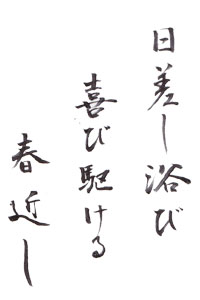 日差し浴び
喜び駆ける
春近し